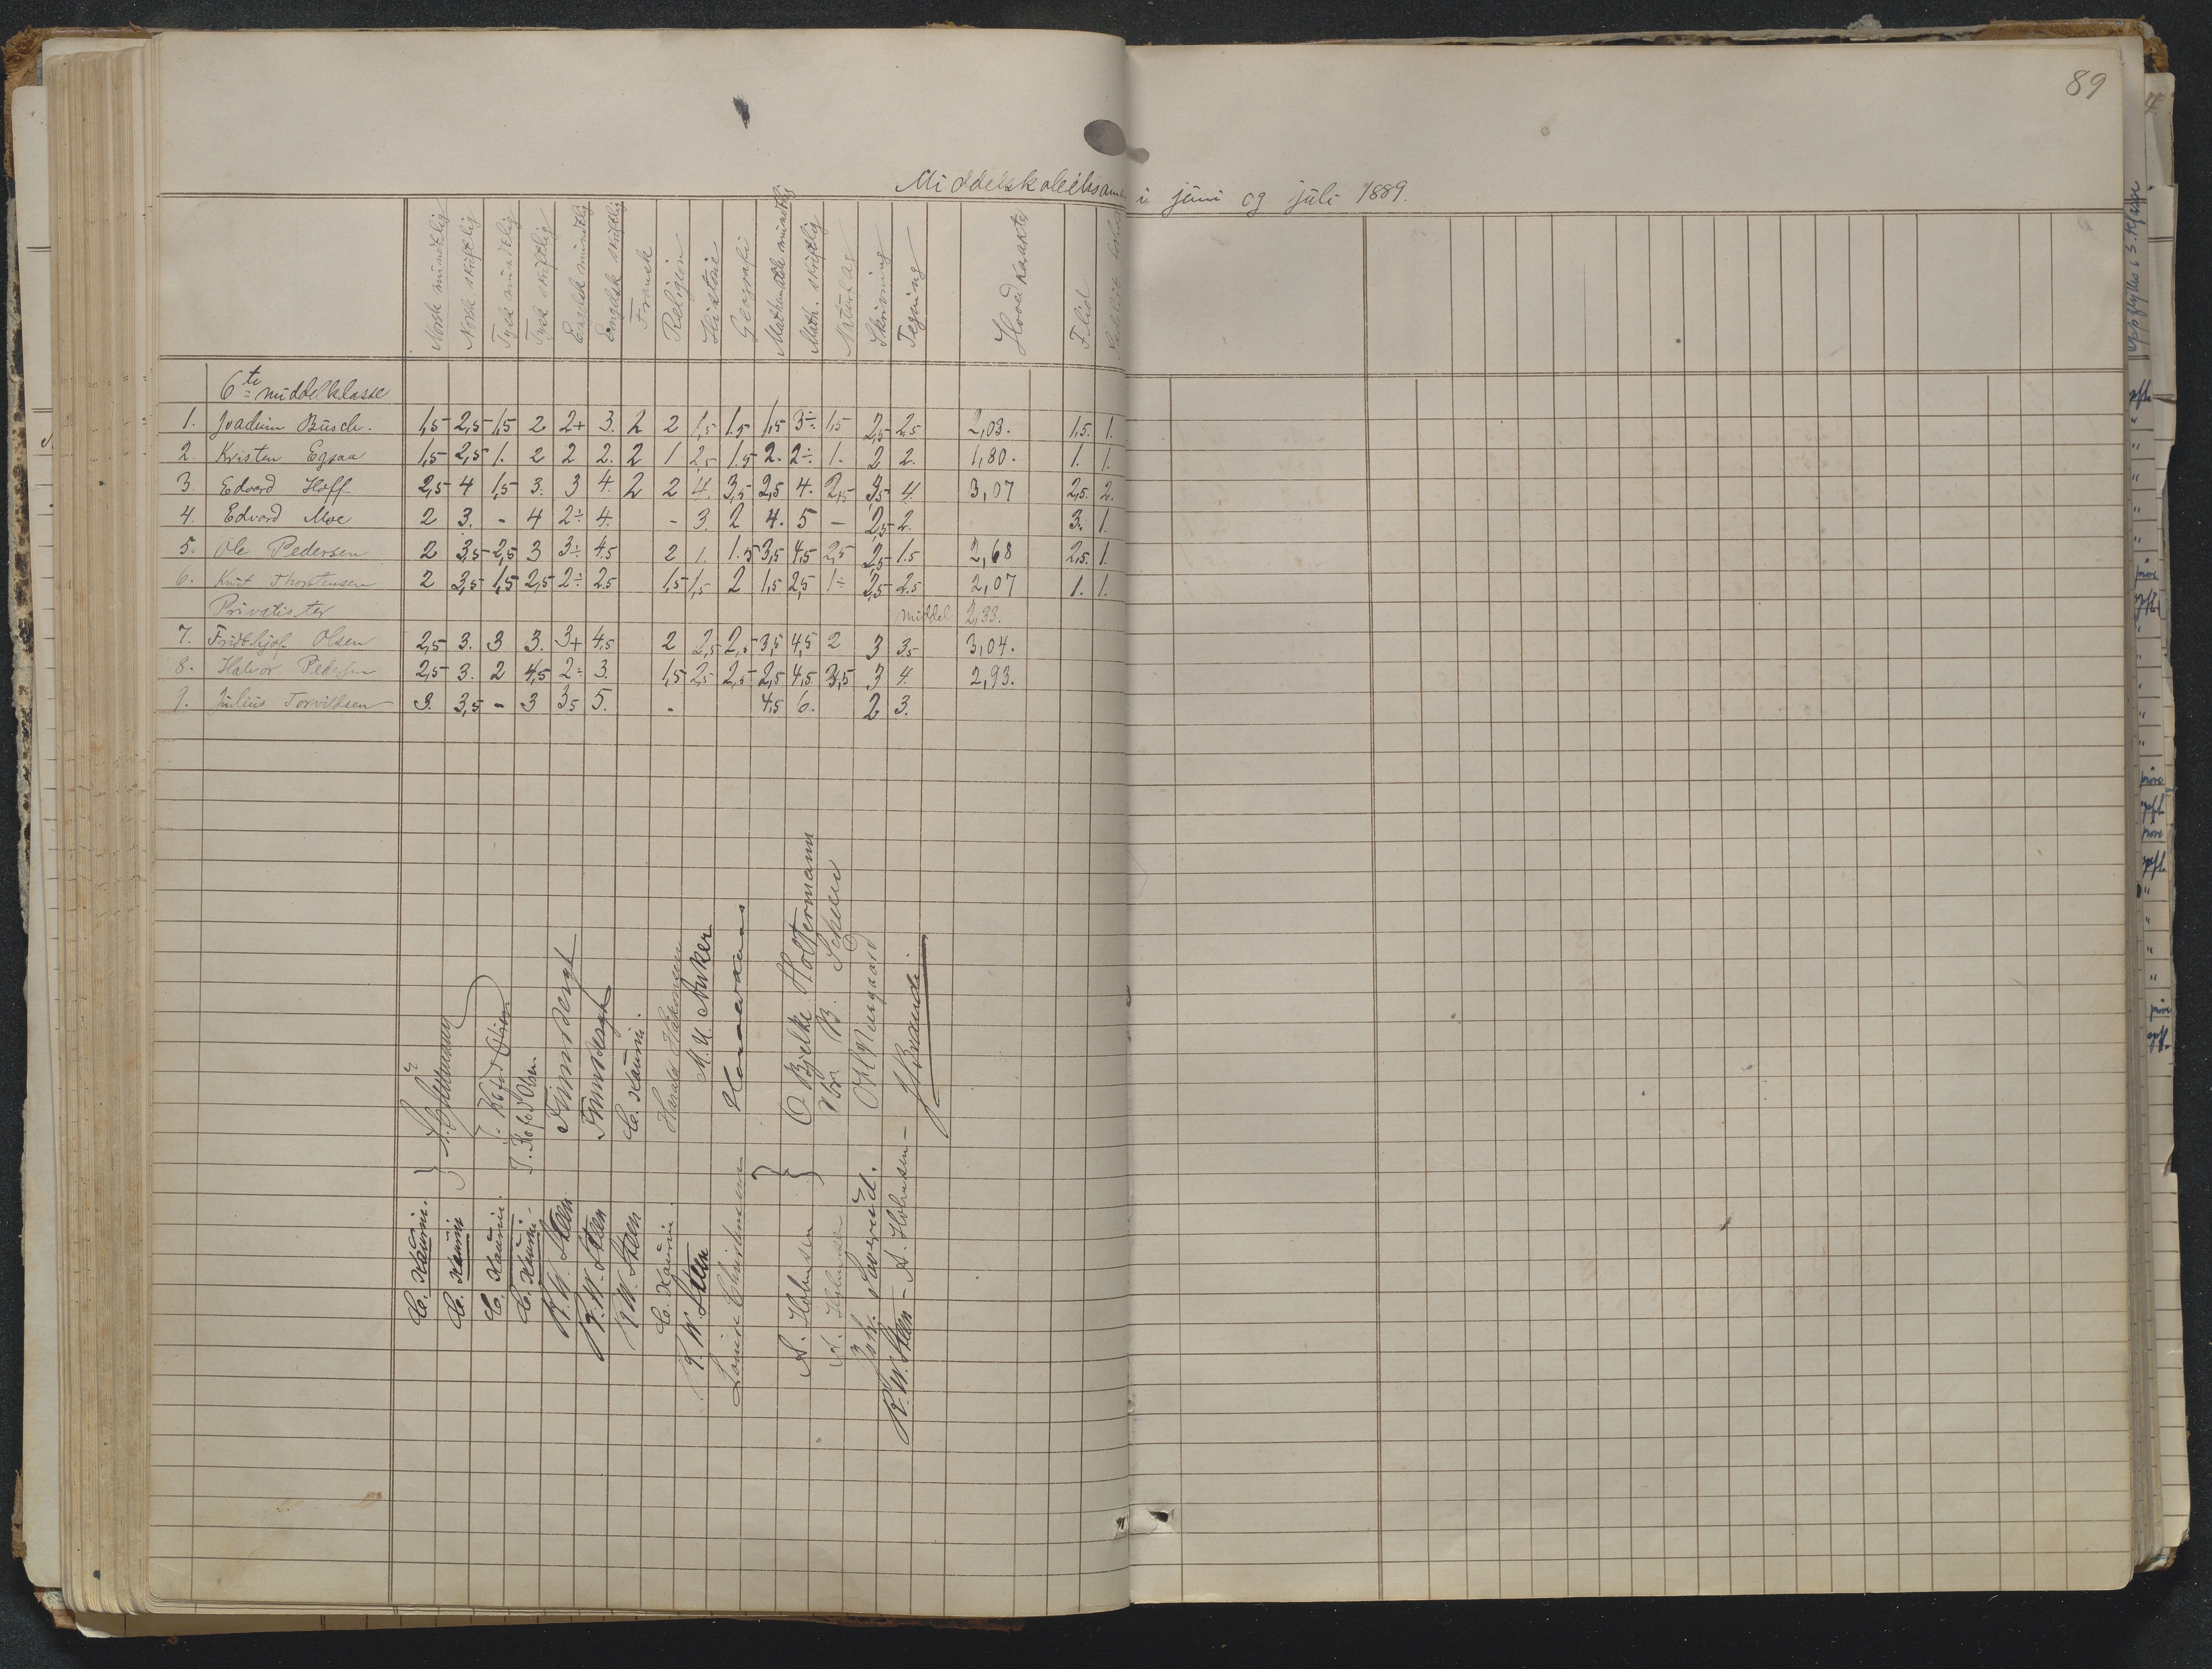 89
Middelskoleeksamen i juni og juli 1889.
Norsk mundtlig Norsk skriftlig Tysk mundtlig Tysk skriftlig Engelsk mundtlig Engelsk skriftlig Fransk Religion Historie Geografi Mathematik mundtlig Math. skriftlig Naturfag Skrivning Tegning Hoved karakter Flid
6te middelklasse
1. Joachim Büsch. 1,5 2,5 1,5 2 2+ 3. 2 2 1,5 1.5 1,5 3÷ 1,5 2,5 2,5 2,03. 1,5. 1.
2. Kristen Egraa 1,5 2,5 1. 2 2 2. 2 1 2,5 1.5 2. 2÷ 1. 2 2. 1,80. 1. 1.
3 Edvard Hoff 2,5 4 1,5 3. 3 4. 2 2 4. 3,5 2,5 4. 2,5 3,5 4. 3,07 2,5. 2.
4. Edvard Moe 2 3. - 4 2÷ 4. - 3. 2 4. 5 - 2,5 2. 3. 1.
5. Ole Pedersen 2 3,5 2,5 3 3÷ 4.5 2 1. 1.5 3,5 4,5 2,5 2,5 1.5 2,68 2,5. 1.
6. Knut Thorstensen 2 3,5 1,5 2,5 2÷ 2.5 1,5 1,5 2 1,5 2,5 1÷ 2,5 2.5 2,07 1. 1.
Privatister middel 2,33.
7. Fridthjof Olsen 2,5 3. 3 3. 3+ 4.5 2 2,5 2,5 3,5 4,5 2 3 3.5 3,04.
8. Halvor Pedersen 2,5 3. 2 4,5 2÷ 3. 1,5 2,5 2,5 2,5 4,5. 3,5 3 4. 2,93.
9. Julius Torvildsen 3. 3,5 - 3 3,5 5. - 4,5 6. 2 3.
C. Kaurin.
C. Kaurin
C. Kaurin. J. Kofod Olsen
C. Kaurin. J. Kofod Olsen
R. W. Steen
R. W. Steen
R. W. Steen C. Kaurin.
C. Kaurin. Harald Håkonsen
R. W. Steen M. U. Anker
Louise Christensen
A. Holmsen O. Bjelke Holtermann
A. Holmsen
Joh. Saverud.
R. W. Steen - A. Holmsen -